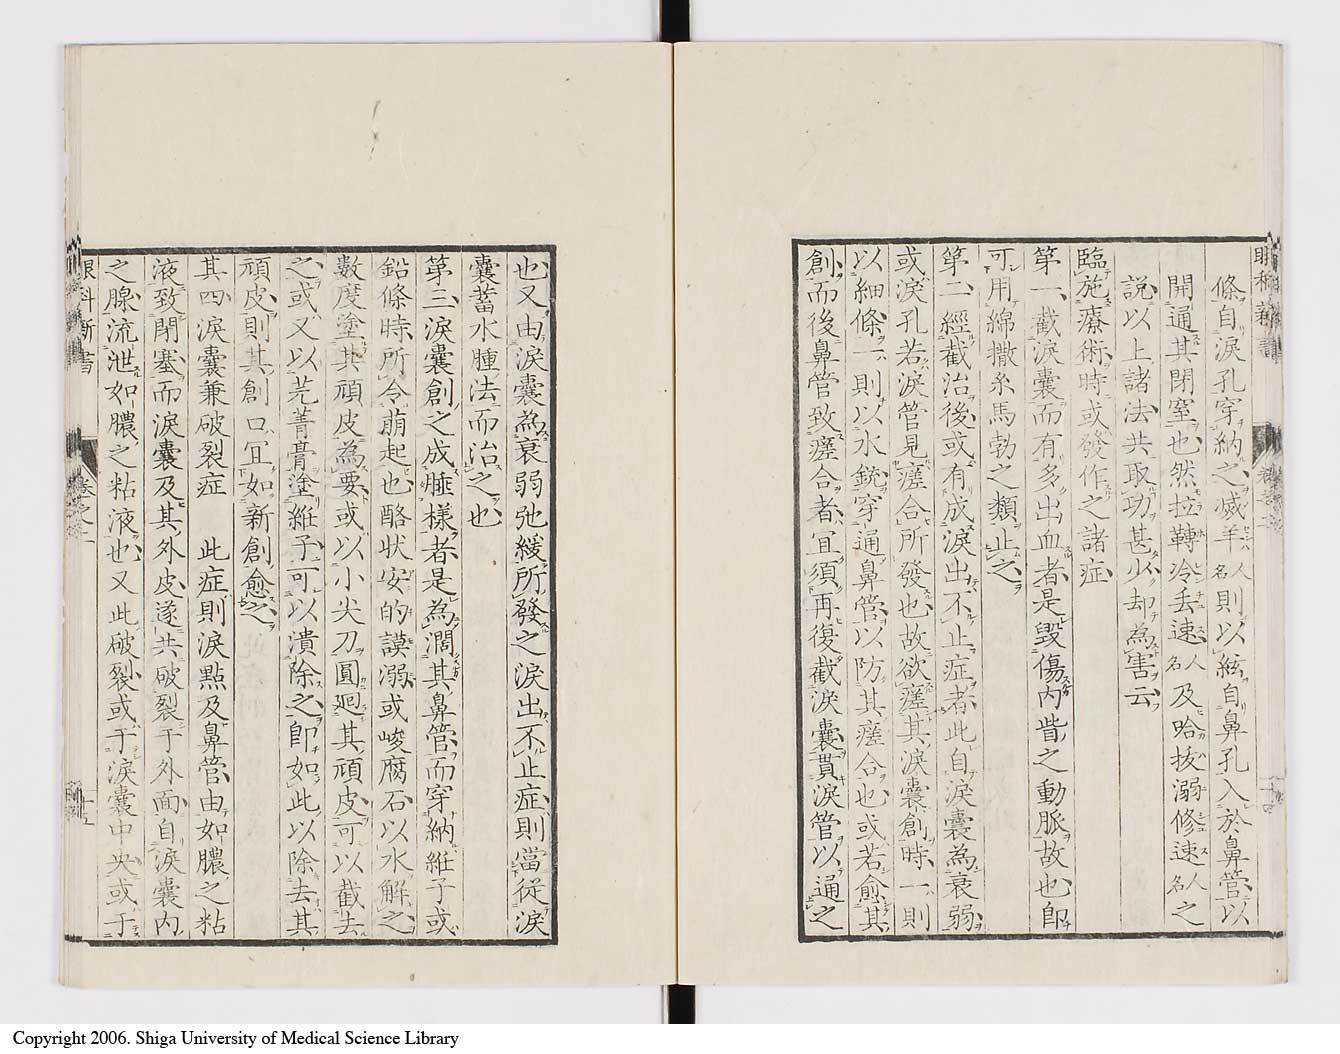 眼科新書
條自淚孔穿納之滅羊人名則以絃自鼻孔入於鼻管以
開通其閉窒也然拉轉冷丢速人名及哈抜溺修速人名之
説以上諸法共取功甚少却為害云
臨施療術時或發作之諸症
第一截淚囊而有多出血者是毀傷內眥之動脈故也卽
可用綿撒糸馬勃之類止之
第二經截治後或有成淚出不止症者此自淚囊為衰弱
或淚孔若淚管見瘥合所發也故欲瘥其淚囊創時一則
以細條一則以水銃穿通鼻管以防其瘥合也或若愈其
創而後鼻管致瘥合者宜須再復截淚囊貫淚管以通之
也又由淚囊為衰弱弛緩所發之淚出不止症則當從淚
囊蓄水腫法而治之也
第三淚囊創之成腫様者是為濶其鼻管而穿納維子或
鉛條時所令萠起也酪状安的謨溺或峻腐石以水解之
數度塗其頑皮為要或以小尖刀圓廻其頑皮可以截去
之或又以芫菁膏塗維子可以潰除之卽如此以除去其
頑皮則其創口宜如新創愈之
其四淚囊兼破裂症 此症則淚點及鼻管由如膿之粘
液致閉塞而淚囊及其外皮遂共破裂于外面自淚囊內
之腺流泄如膿之粘液也又此破裂或于淚囊中央或于
眼科新書
卷之二
十五
Copyright 2006. Shiga University of Medical Science Library